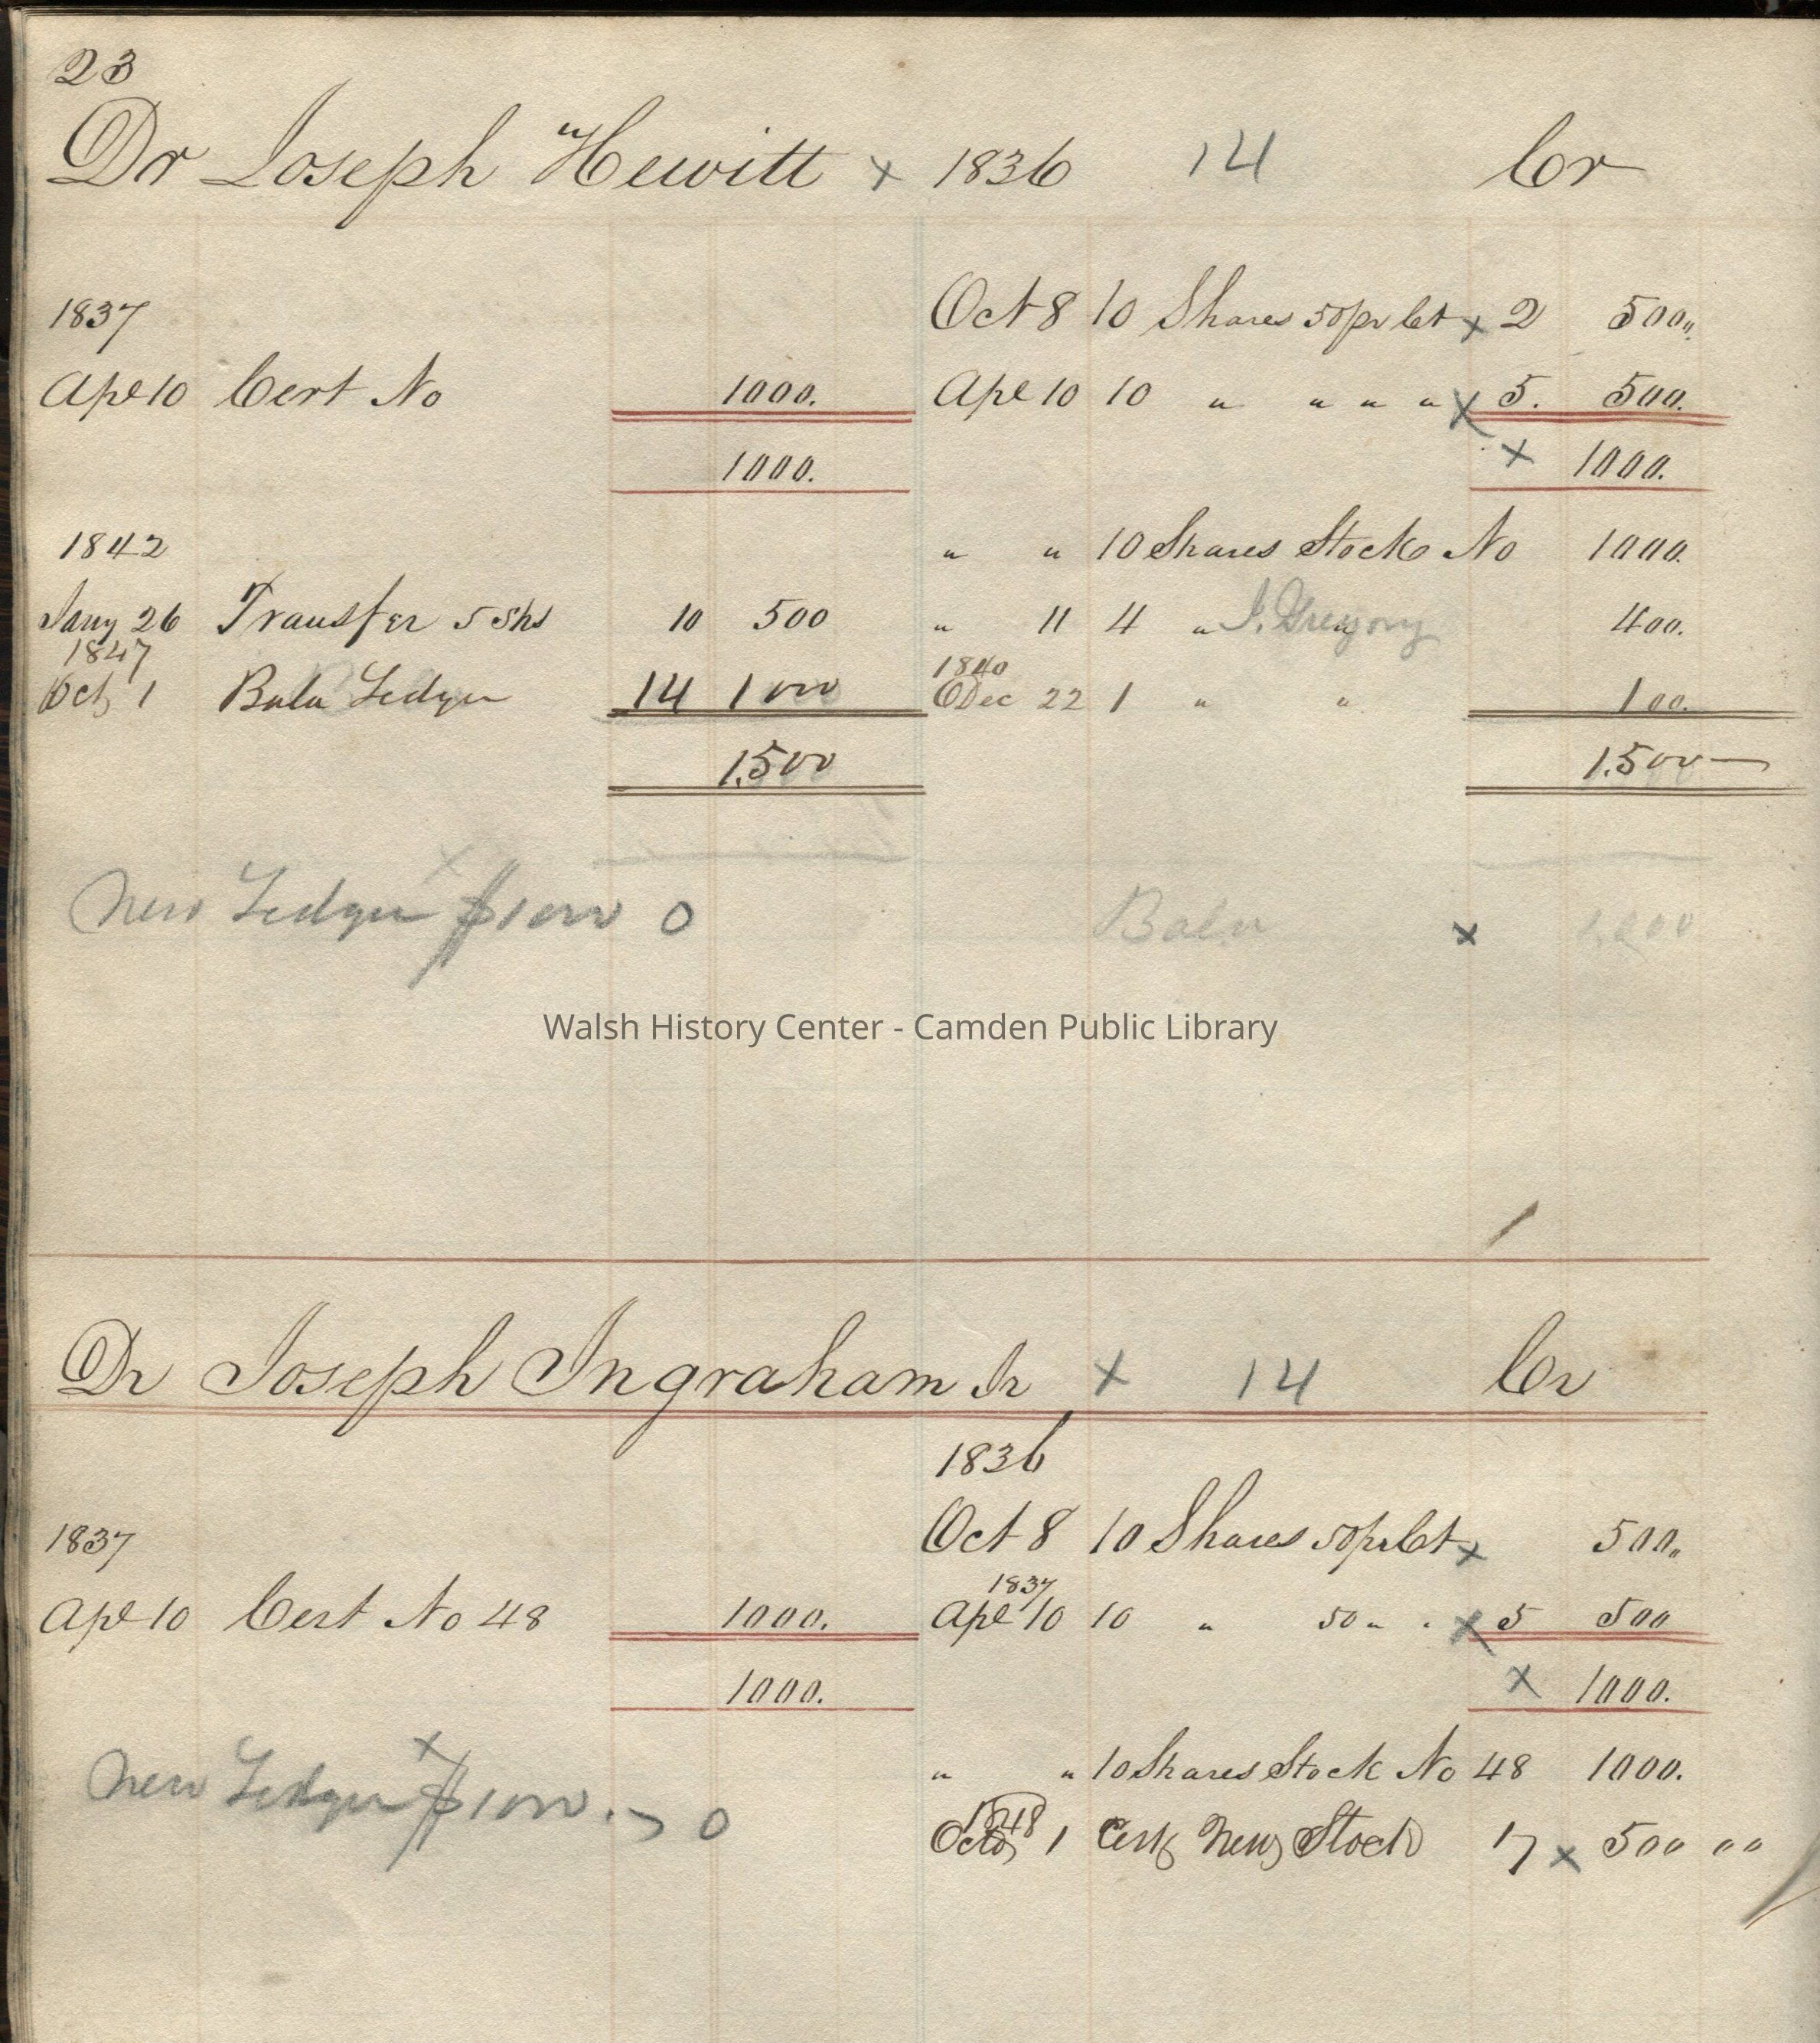 23
Dr Joseph Hewitt x 1836 14 Cr
Oct 8 10 Shares 50 pr Ct x 2 500„
1837
Apl 10 Cert No 1000. Apl 10 10 " " " " x 5. 500.
1000. x 1000.
1842 " " 10 Shares Stock No 1000.
Jany 26 Transfer 5 Shs 10 500 " 11 4 " J. Gregory " 400.
1847 1840
Oct 1 Bala Ledger 14 1000 Dec 22 1 " " 100.
1,500 1,500—
New Ledger x $1000 0 Bala x
Walsh History Center - Camden Public Library
Dr Joseph Ingraham Jr x 14 Cr
1836
1837 Oct 8 10 Shares 50 pr Ct x 500„
1837
Apl 10 Cert No 48 1000. Apl 10 10 " 50 " " x 5 500
1000. x 1000.
" " 10 Shares Stock No 48 1000.
New Ledger x $1000. 0
1848
Octo 1 Cert New Stock 17 x 500 00